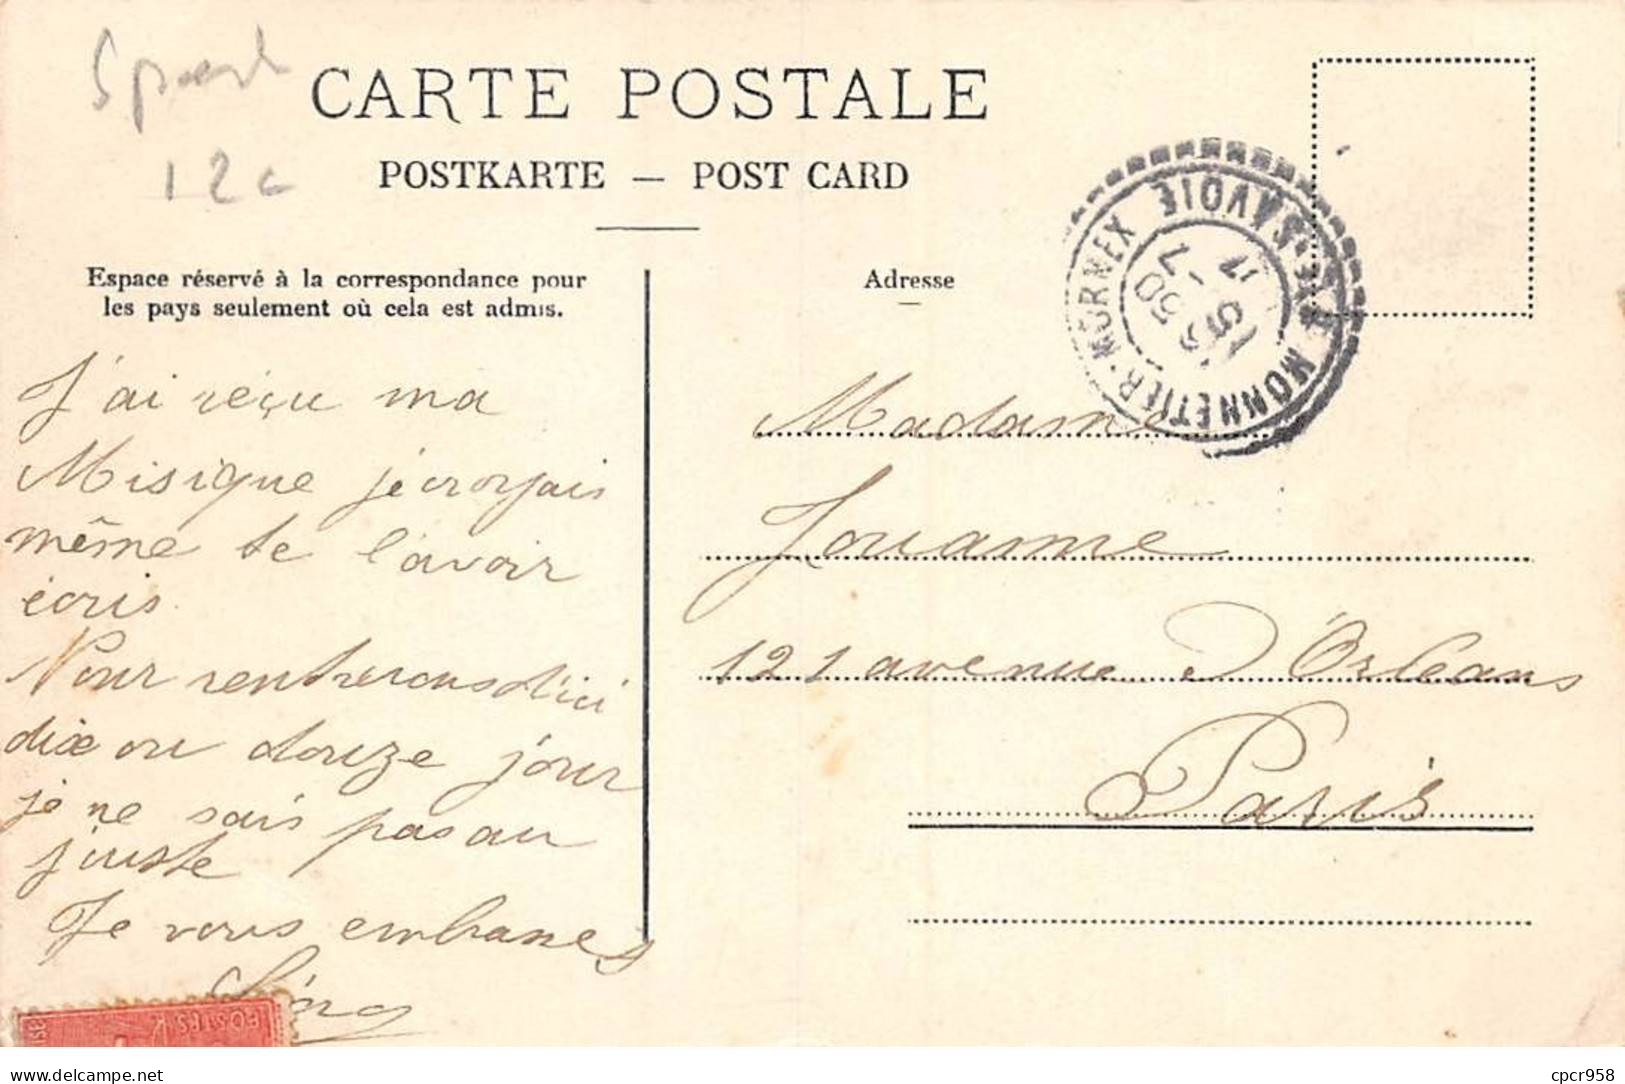 Sport
12c
CARTE POSTALE
POSTKARTE — POST CARD
Espace réservé à la correspondance pour
les pays seulement où cela est admis.
Adresse
MONNETIER-MORNEX
SAVOIE
J'ai réçu ma
Misique je croyais
même te l'avoir
écris.
Nour rentrerons d'ici
dix ou douze jour
je ne sais pas au
juste
Je vous embrasses
Madame
Jouanne
121 avenue d'Orleans
Paris
POSTES
www.delcampe.net
cpcr958